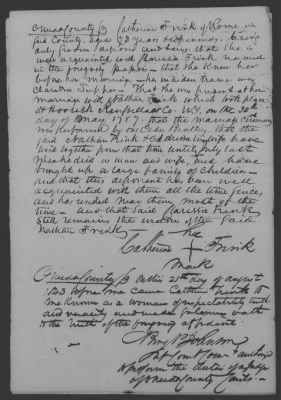 Oneida County ss Catherine Frink of Rome in
said County, aged 73 years being
duly sworn deposes and says that she is
well acquainted with Clarissa Frink named
in the foregoing paper that she knew her
before her marriage her maiden name was
Clarissa Tupper That she was present at her
marriage with Nathan Frink which took place
at Hoosack Rensselaer Co. NY, on the
day of May 1787. that the marriage ceremony
was performed by one Bentley, that the
said Nathan Frink & Clarissa his wife have
lived together from that time until July last
when he died as man and wife, and have
brought up a large family of Children
and that this deponent has been well
acquainted with them all the time since,
and has resided near them most of the
time and that Said Clarissa Frink
Still remains the widow of the said
Nathan Frink
her
Catherine + Frink
Mark
Oneida County ss On this 21st day of August
before me came Catherine Frink to
me Known as a woman of respectability
and veracity and made solemn oath
to the truth of the foregoing affidavit
B Johnson
authorised
to perform the duties of a Judge
of Oneida County Courts